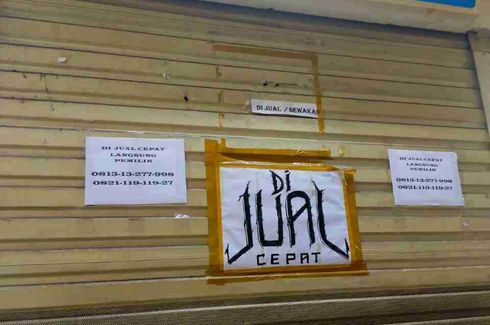 DI JUAL / SEWAKAN
DI JUAL CEPAT
LANGSUNG
PEMILIK
0813-13-277-998
0821-119-119-27
DI
JUAL
CEPAT
DI JUAL CEPAT
LANGSUNG
PEMILIK
0813-13-277-998
0821-119-119-27